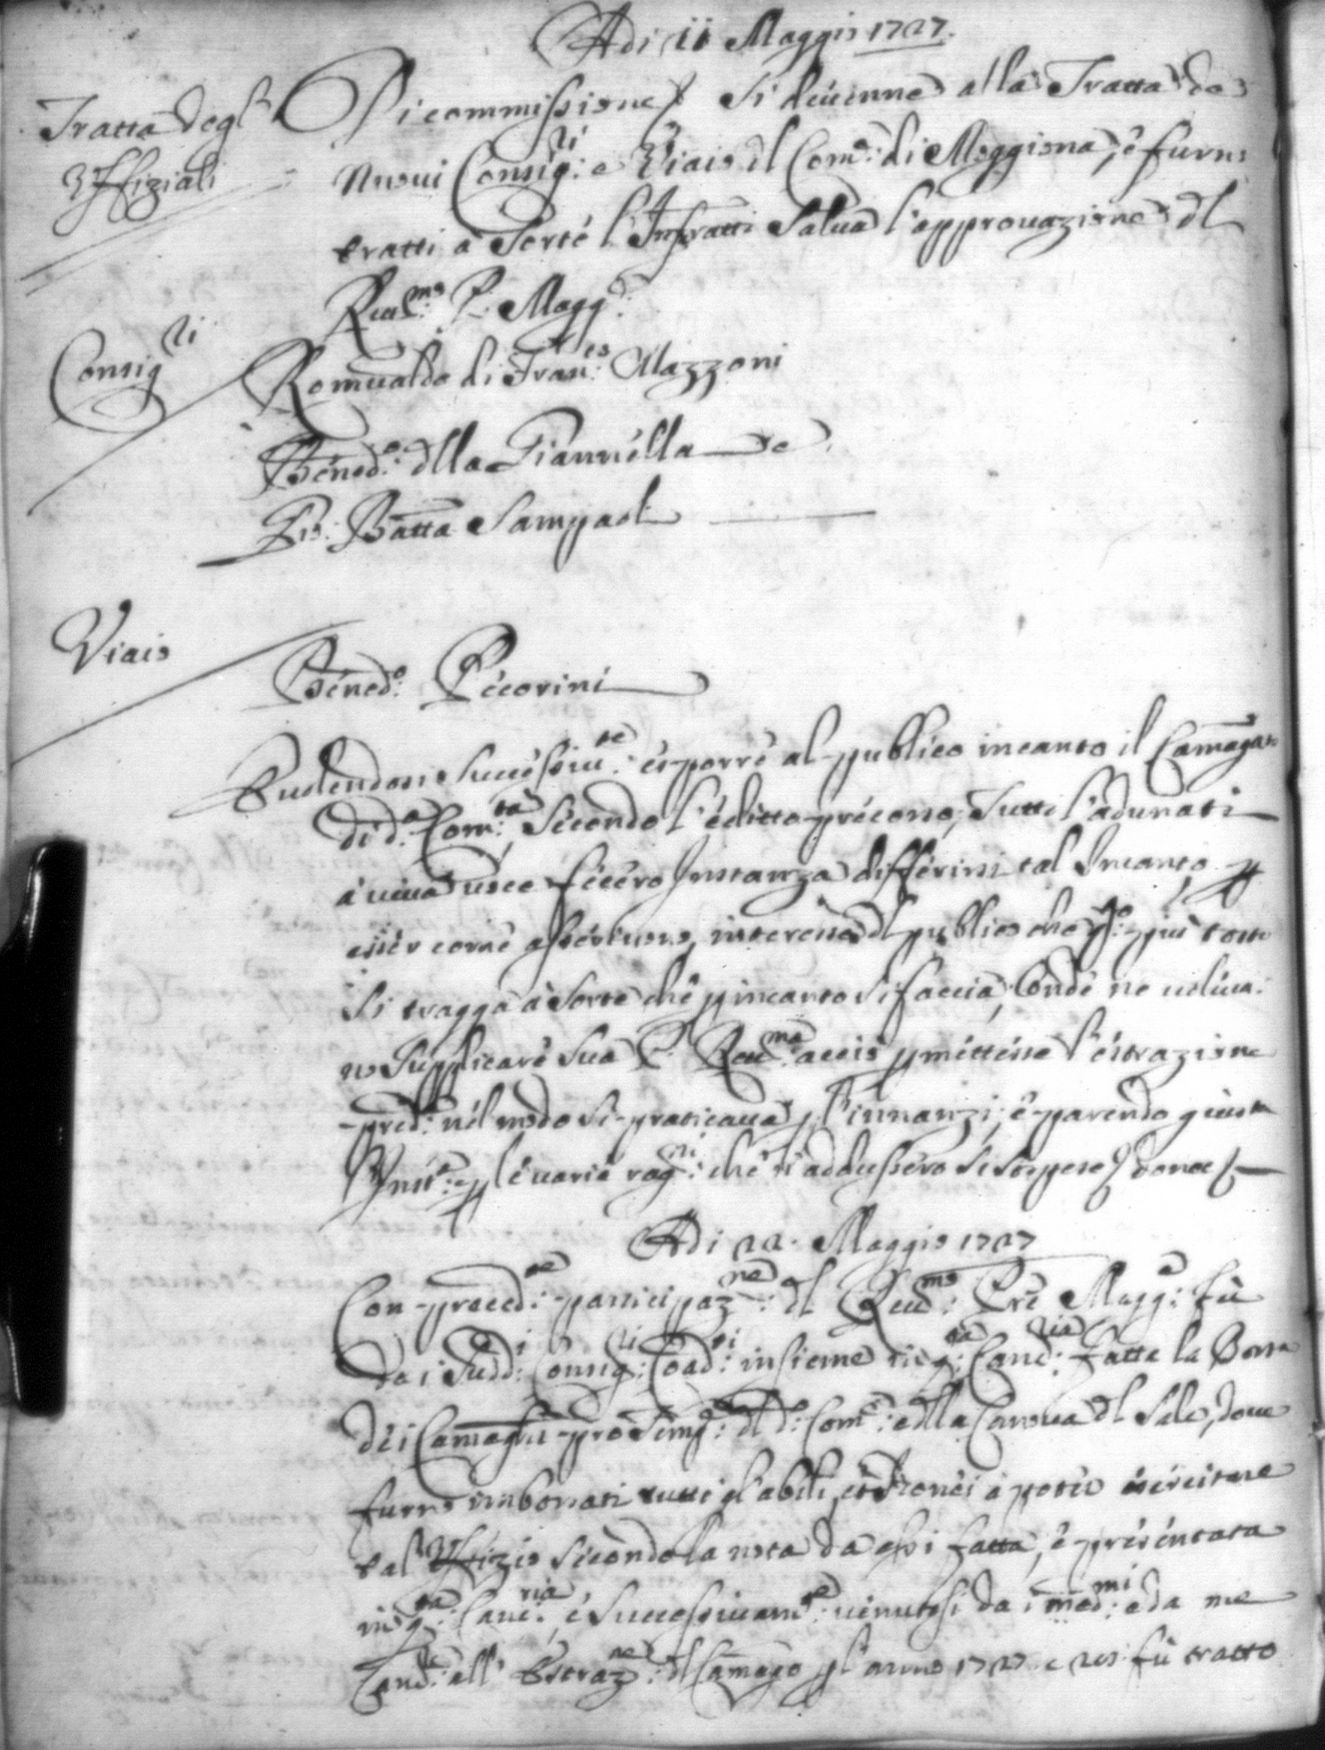 Adi 11 Maggio 1727.
Tratta degl'
Uffiziali
Di commissione si devenne alla Tratta de
nuovi Consig:ri e Viaio dl Com:e di Moggiona, e furno
tratti a Sorte l'Infratti Salva l'approvazione dl
Rev:mo P. Magg:e
Consig:ri
Romualdo di Fran:co Mazzoni
Bened:o dlla Giannella e
Gio: Batta Sampaoli
Viaio
Bened:o Pecorini
Volendosi Successiv:te esporre al publico incanto il Camarg:o
di d:a Com:tà Secondo l'editto precorso, Tutti l'adunati
à viva voce fecero Instanza differirsi tal Incanto p
esser come asserivano, interesse dl publico che q:o più tosto
Si tragga à Sorte che p incanto si faccia; Onde ne voleva:
no Supplicare Sua P. Rev:ma accio pmettesse l'estrazione
pred:a nel modo si praticava p l'innanzi; e parendo giusta
l'Inst:a p le varie rag:ni che s'addussero si sospese donec
Adi 22. Maggio 1727
Con preced:te participaz:ne dl Rev:mo Pre Magg:e fù
da i Sudd:i Consig:ri Coad:ti insieme in q:a Canc:ria fatta la Borsa
dei Camarghi pro temp:e dl d:o Com:e e dlla Canova dl Sale, dove
furno imborsati tutti gl'abili, et Idonei à poter esercitare
tal Uffizio Secondo la nota da essi fatta, e presentata
in q:a Canc:ria, e Successivam:te venutosi da i med:mi e da me
Canc:re all' Estraz:ne dl Camargo p l'anno 1727 e 28: fù tratto